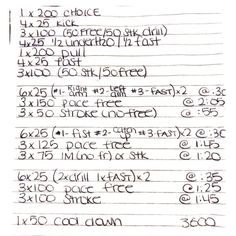 1 x 200 CHOICE
4x25 KICK
3x100 (50 free/50 stk/drill)
4x25 1/2 underH2O / 1/2 fast
1x200 pull
4x25 fast
3x100 (50 stk/50 free)
6x25 (#1- Right arm #2- Left arm #3-FAST)x2 @ :30
3x150 pace free @ 2:05
3x50 stroke (no free) @ :55
6x25 (#1- fist #2- catch up #3-FAST)x2 @ :30
3x125 pace free @ 1:45
3x75 IM (no fr) or stk @ 1:20
6x25 (2xdrill 1xfast)x2 @ :35
3x100 pace free @ 1:25
3x100 stroke @ 1:45
1x50 cool down 3600